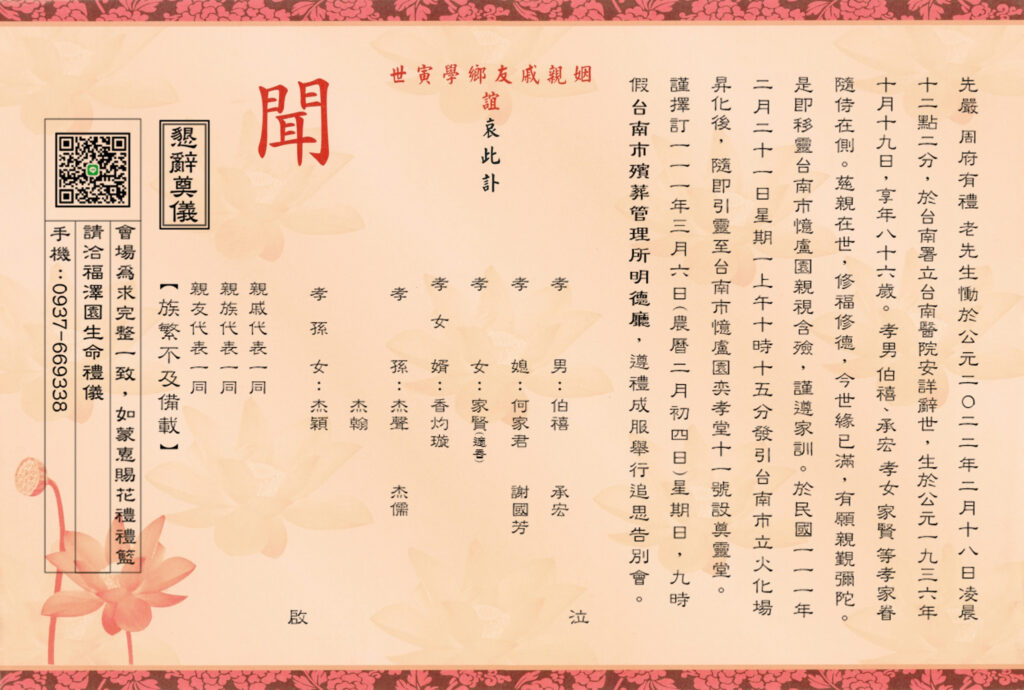 先嚴 周府有禮 老先生慟於公元二〇二二年二月十八日凌晨
十二點二分，於台南署立台南醫院安詳辭世，生於公元一九三六年
十月十九日，享年八十六歲。孝男 伯禧、承宏 孝女 家賢 等孝家眷
隨侍在側。慈親在世，修福修德，今世緣已滿，有願親覲彌陀。
是即移靈台南市憶盧園親視含殮，謹遵家訓。於民國一一一年
二月二十一日星期一上午十時十五分發引台南市立火化場
昇化後，隨即引靈至台南市憶盧園奕孝堂十一號設奠靈堂。
謹擇訂一一一年三月六日(農曆二月初四日)星期日，九時
假台南市殯葬管理所明德廳，遵禮成服舉行追思告別會。
姻親戚友鄉學寅世
誼
哀此訃
聞
孝 男：伯禧 承宏
孝 媳：何家君 謝國芳
孝 女：家賢(適香)
孝女 婿：香灼璇
孝 孫：杰聲 杰儒
杰翰
孝孫女：杰穎
泣
啟
親戚代表一同
親族代表一同
親友代表一同
【族繁不及備載】
懇辭奠儀
會場為求完整一致，如蒙惠賜花禮禮籃
請洽福澤園生命禮儀
手機：0937-669338